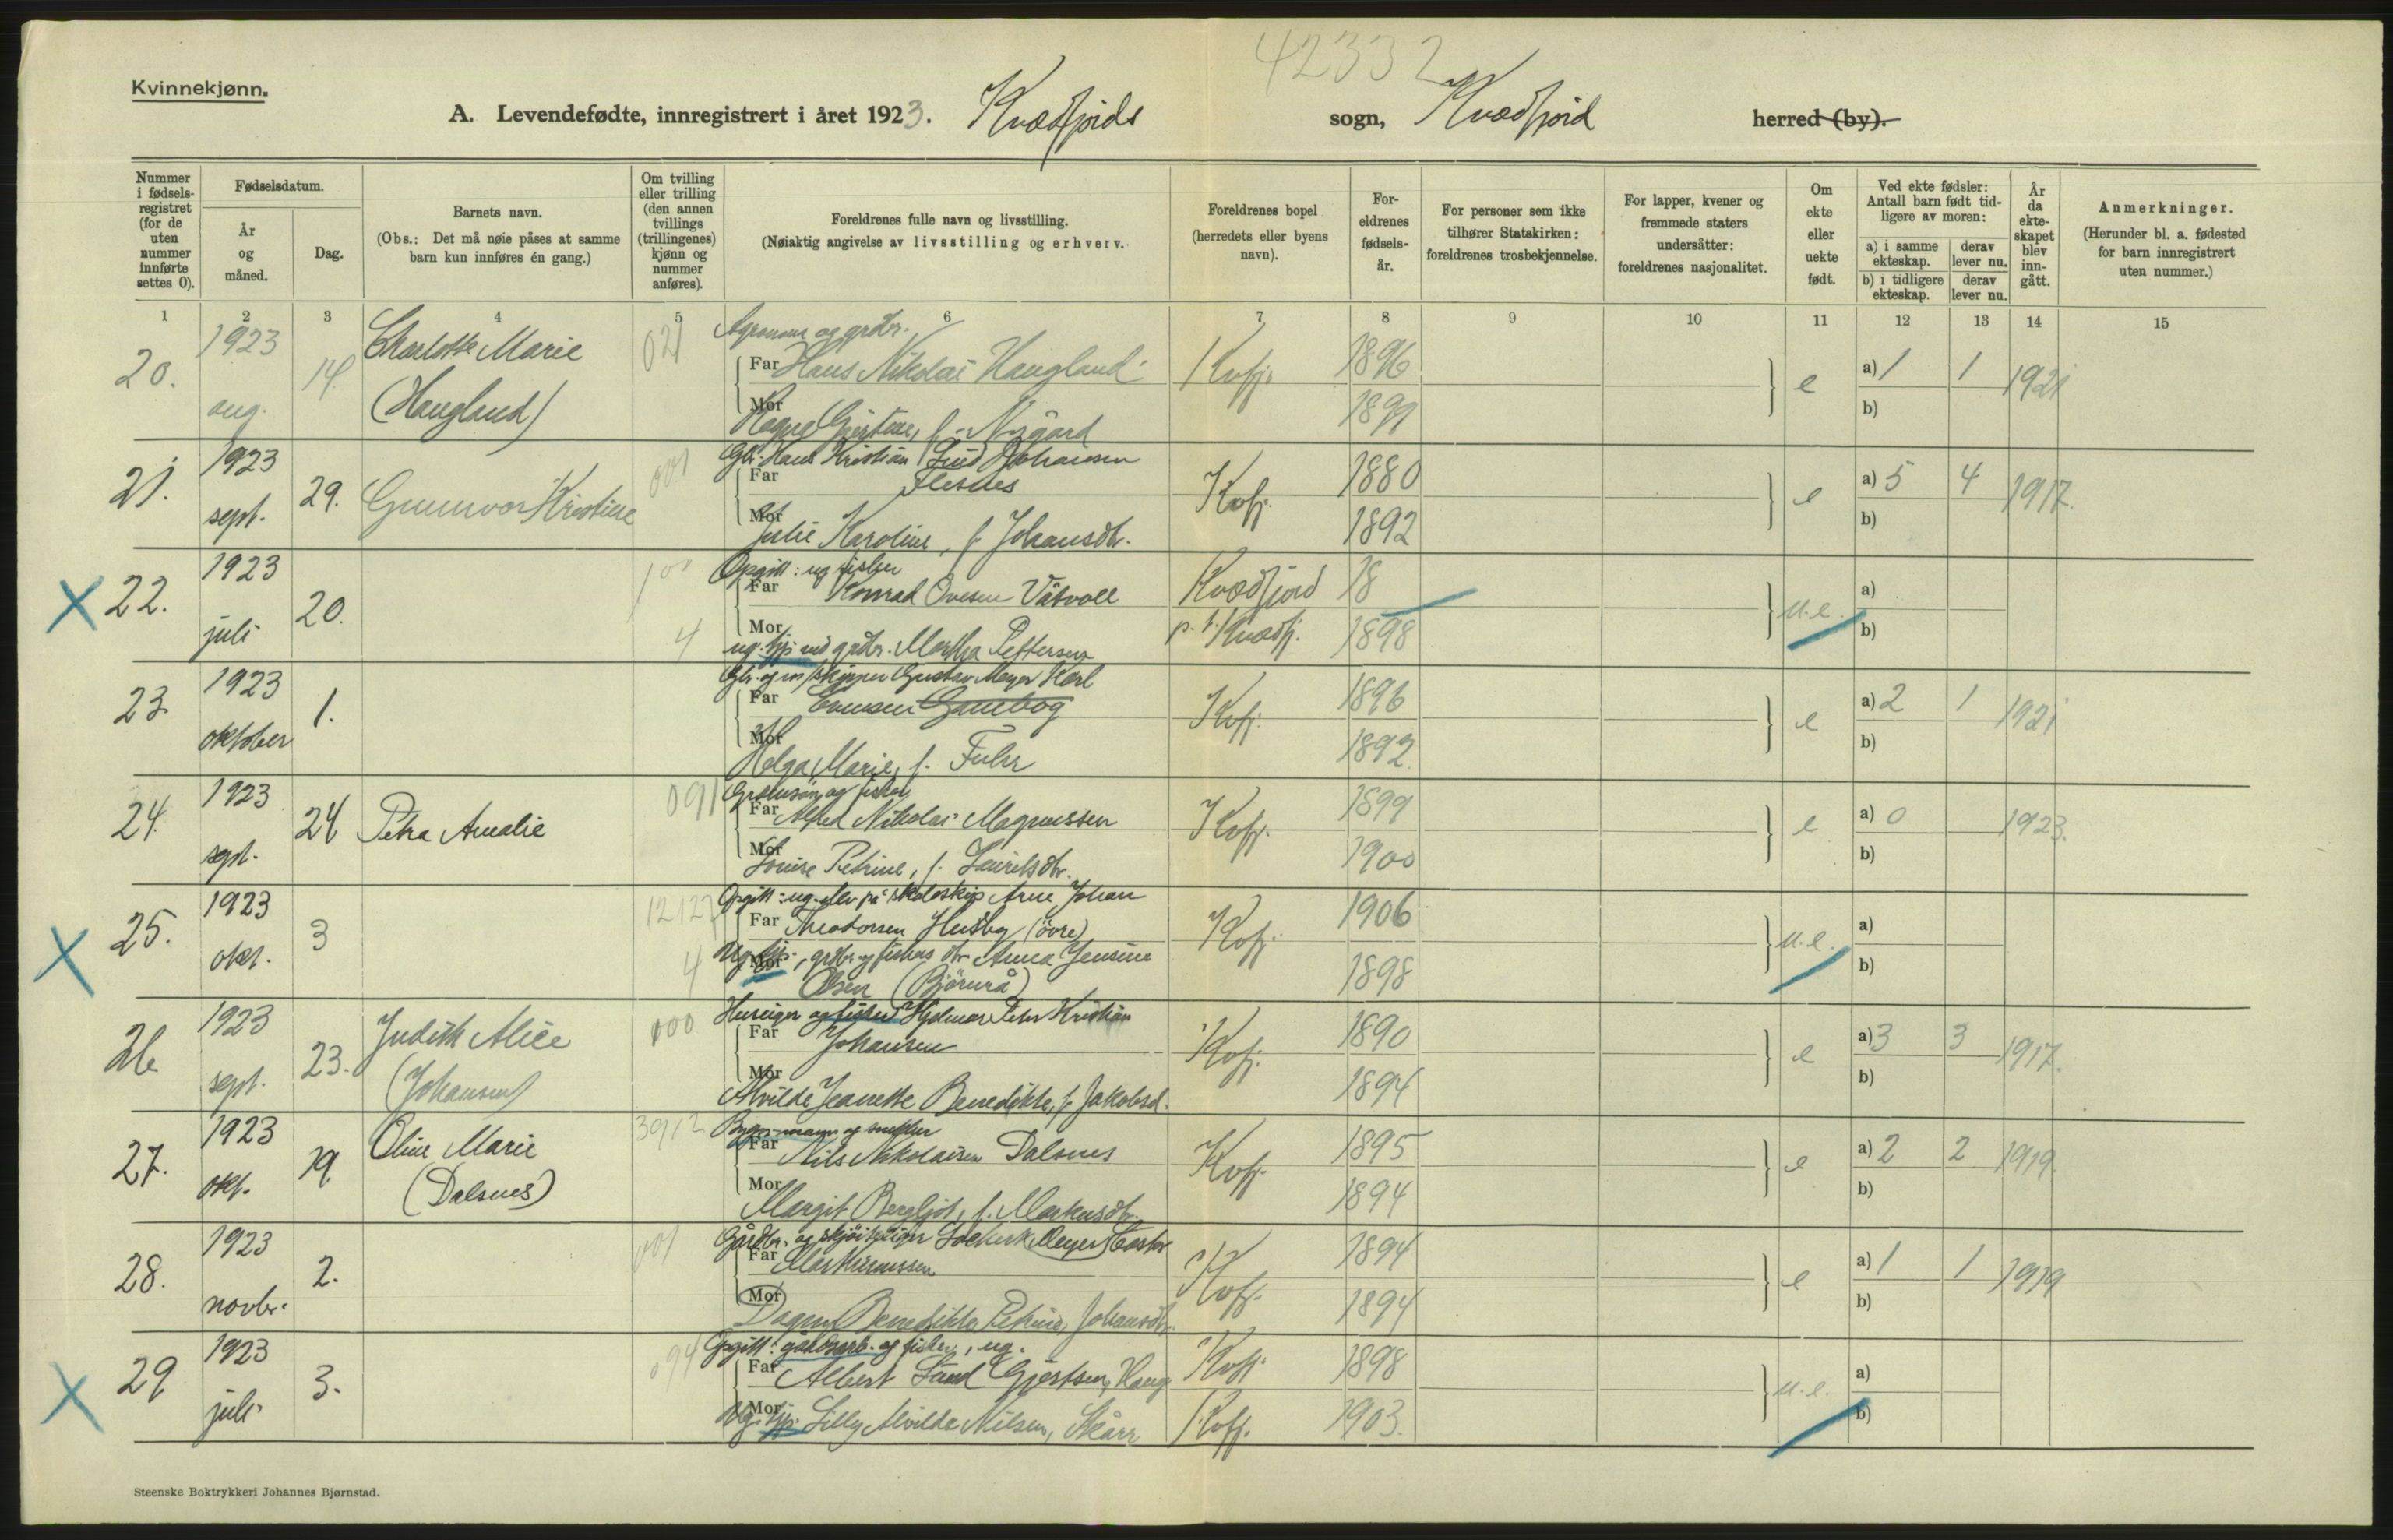 42332
Kvinnekjønn.
A. Levendefødte, innregistrert i året 1923. Kvædfjords sogn, Kvædfjord herred (by).
Nummer i fødselsregistret (for de uten nummer innførte settes 0).
Fødselsdatum.
År og måned.
Dag.
Barnets navn.
(Obs.: Det må nøie påses at samme barn kun innføres én gang.)
Om tvilling eller trilling (den annen tvillings (trillingenes) kjønn og nummer anføres).
Foreldrenes fulle navn og livsstilling.
(Nøiaktig angivelse av livsstilling og erhverv.
Foreldrenes bopel (herredets eller byens navn).
Foreldrenes fødselsår.
For personer som ikke tilhører Statskirken: foreldrenes trosbekjennelse.
For lapper, kvener og fremmede staters undersåtter: foreldrenes nasjonalitet.
Om ekte eller uekte født.
Ved ekte fødsler: Antall barn født tidligere av moren:
a) i samme ekteskap. derav lever nu.
b) i tidligere ekteskap. derav lever nu.
År da ekteskapet blev inngått.
Anmerkninger.
(Herunder bl. a. fødested for barn innregistrert uten nummer.)
1 2 3 4 5 6 7 8 9 10 11 12 13 14 15
20. 1923 aug. 14. Charlotte Marie (Haugland) 021
Agronom og grdbr.
Far Hans Nikolai Haugland Kvfj. 1896 e a) 1 1 1921
Mor Ragna f. Nygård 1899 b)
21. 1923 sept. 29. Gunnvor Kristine 001
Gbr. Hans Kristian Lind Johansen
Far Flesnes Kvfj. 1880 e a) 5 4 1917.
Mor Julie Karoline, f. Johansdtr. 1892 b)
22. 1923 juli 20. 4
Opgitt: ug fisker
Far Konrad Ovesen Våtvoll Kvædfjord 18 u.e. a)
Mor ug. tjp. ved grdbr. Martha Pettersen p.t. Kvædfj. 1898 b)
23. 1923 oktober 1.
Gbr. og m/skipper Gustav Meyer Karl
Far Evensen Kvfj. 1896 e a) 2 1 1921
Mor Helga Marie, f. Fuhr 1892. b)
24. 1923 sept. 24 Petra Amalie 091
og fisker
Far Alfred Nikolai Magnussen Kvfj. 1899 e a) 0 1923.
Mor Louise Petrine, f. Lauritsdtr. 1900 b)
25. 1923 okt. 3 4
Opgitt: ug. elev på skoleskip Arne Johan
Far Theodorsen Husby (övre) Kvfj. 1906 u.e. a)
Ug. tjp., grdbr. og fiskers dtr Anna Jensine
Mor Olsen (Björnrå) 1898 b)
26 1923 sept. 23. Judith Alice (Johansen) 000
Huseier og fisker Hjalmar Peter Kristian
Far Johansen Kvfj. 1890 e a) 3 3 1917.
Mor Alvilde Jeanette Benedikte, f. Jakobsd. 1894 b)
27. 1923 okt. 19. Oline Marie (Dalsnes) 3912
og snekker
Far Nils Nikolaisen Dalsnes Kvfj. 1895 e a) 2 2 1919
Mor Margit Bergljot, f. Markusdtr. 1894 b)
28. 1923 novbr. 2. 001
Gårdbr. og skjöiteeier Meyer Castor
Far Markussen Kvfj. 1894 e a) 1 1 1919
Mor Dagny Benedikte Petrine, Johansdtr. 1894 b)
29 1923 juli 3. 094
Opgitt: gårdsarb. og fisker, ug.
Far Albert Lund Gjertsen, Haug Kvfj. 1898 u.e. a)
Mor Ug. tjp. Lilly Alvilde Nilsen, Skårr Kvfj. 1903. b)
Steenske Boktrykkeri Johannes Bjørnstad.